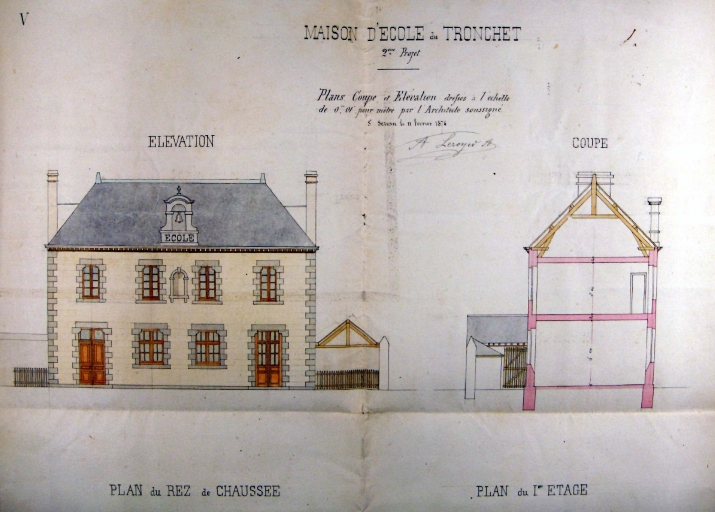 V
MAISON D'ECOLE du TRONCHET
2me Projet
Plans Coupe et Elévation dressés à l'échelle
de 0m01 pour mètre par l'Architecte soussigné
S. Servan le 11 février 1874
ELEVATION
COUPE
ECOLE
PLAN du REZ de CHAUSSEE
PLAN du 1er ETAGE